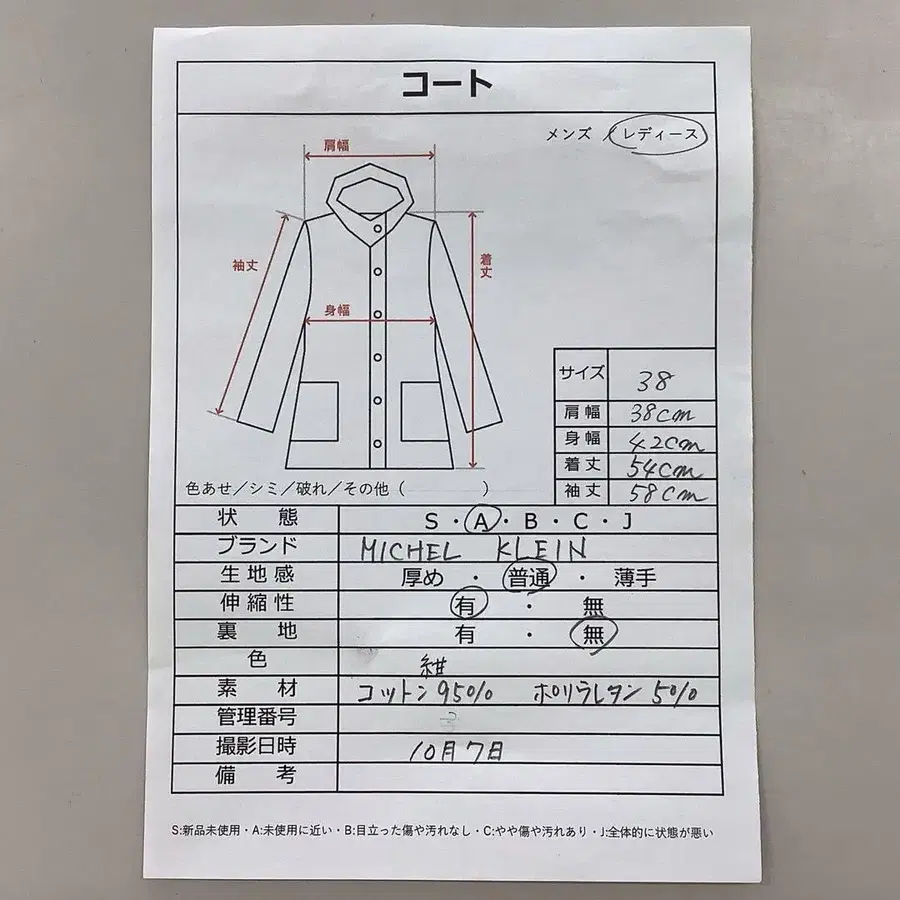 コート
メンズ / レディース
肩幅
袖丈
着丈
身幅
サイズ 38
肩幅 38cm
身幅 42cm
着丈 54cm
袖丈 58cm
色あせ/シミ/破れ/その他 ( )
状態 S・A・B・C・J
ブランド MICHEL KLEIN
生地感 厚め ・ 普通 ・ 薄手
伸縮性 有 ・ 無
裏地 有 ・ 無
色 紺
素材 コットン95% ポリウレタン5%
管理番号
撮影日時 10月7日
備考
S:新品未使用・A:未使用に近い・B:目立った傷や汚れなし・C:やや傷や汚れあり・J:全体的に状態が悪い